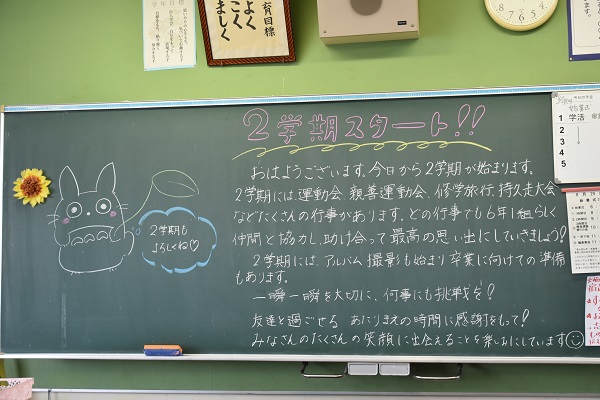 育目標
よく
こく
ましく
2学期スタート!!
おはようございます。今日から2学期が始まります。
2学期には、運動会、親善運動会、修学旅行、持久走大会
などたくさんの行事があります。どの行事でも6年1組らしく
仲間と協力し、助け合って最高の思い出にしていきましょう!
2学期には、アルバム撮影も始まり卒業に向けての準備
もあります。
一瞬一瞬を大切に、何事にも挑戦を!
友達と過ごせる あたりまえの時間に感謝をもって!
みなさんのたくさんの笑顔に出会えることを楽しみにしています
2学期も
よろしくね♡
始業式
1 学活
2
3
4
5